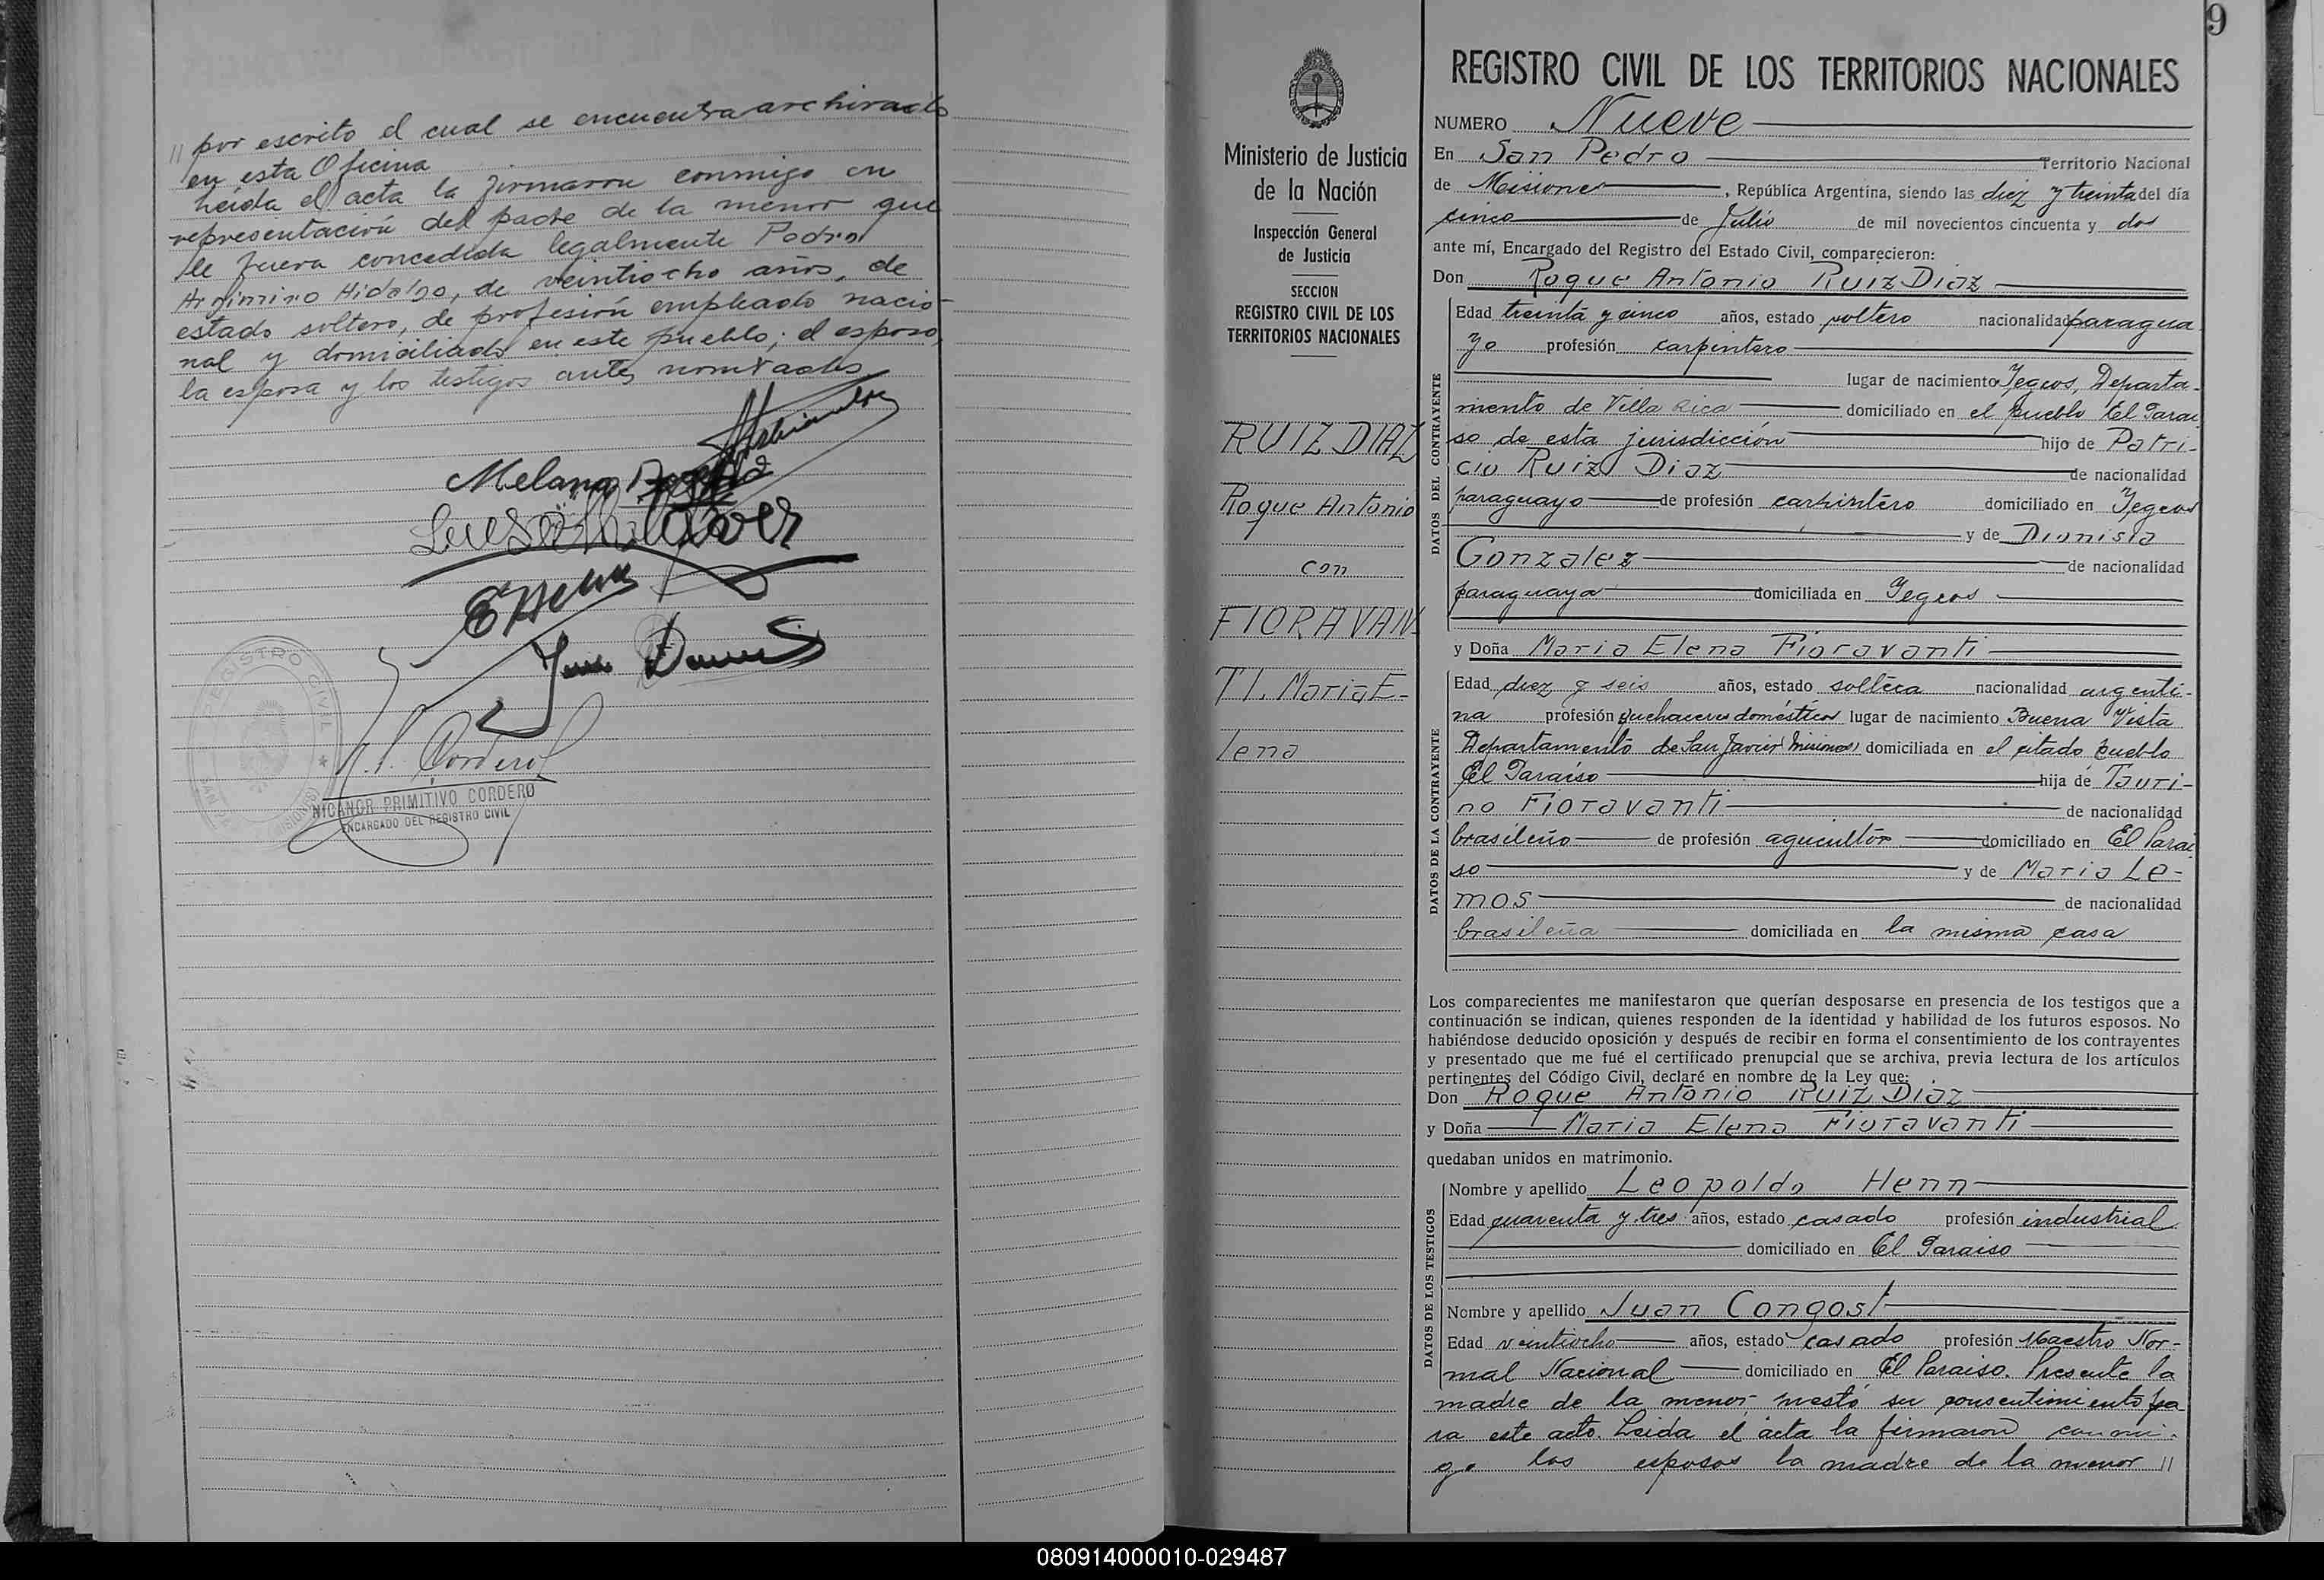 " por escrito el cual se encuentra archivado
en esta Oficina
Leida el acta la firmaron conmigo en
representación del padre de la menor que
le fuera concedida legalmente Pedro
Argimiro Hidalgo, de veintiocho años, de
estado soltero, de profesión empleado nacio-
nal y domiciliado en este pueblo; el esposo,
la esposa y los testigos antes nombrados
N. P. Cordero
REGISTRO CIVIL
SAN
MISIONES
NICANOR PRIMITIVO CORDERO
ENCARGADO DEL REGISTRO CIVIL
Ministerio de Justicia
de la Nación
Inspección General
de Justicia
SECCION
REGISTRO CIVIL DE LOS
TERRITORIOS NACIONALES
RUIZ DIAZ
Roque Antonio
con
FIORAVAN
TI. Maria E-
lena
9
REGISTRO CIVIL DE LOS TERRITORIOS NACIONALES
NUMERO Nueve
En San Pedro Territorio Nacional
de Misiones, República Argentina, siendo las diez y treinta del día
cinco de Julio de mil novecientos cincuenta y dos
ante mí, Encargado del Registro del Estado Civil, comparecieron:
Don Roque Antonio Ruiz Diaz
DATOS DEL CONTRAYENTE
Edad treinta y cinco años, estado soltero nacionalidad paragua
yo profesión carpintero
lugar de nacimiento Yegros, Departa-
mento de Villa Rica domiciliado en el pueblo El Parai
so de esta jurisdicción hijo de Patri-
cio Ruiz Diaz de nacionalidad
paraguayo de profesión carpintero domiciliado en Yegros
y de Dionisia
Gonzalez de nacionalidad
paraguaya domiciliada en Yegros
y Doña Maria Elena Fioravanti
DATOS DE LA CONTRAYENTE
Edad diez y seis años, estado soltera nacionalidad argenti-
na profesión quehaceres domésticos lugar de nacimiento Buena Vista
Departamento de San Javier (Misiones) domiciliada en el citado pueblo
El Paraiso hija de Tauri-
no Fioravanti de nacionalidad
brasileño de profesión agricultor domiciliado en El Parai
so y de Maria Le-
mos de nacionalidad
brasileña domiciliada en la misma casa
Los comparecientes me manifestaron que querían desposarse en presencia de los testigos que a
continuación se indican, quienes responden de la identidad y habilidad de los futuros esposos. No
habiéndose deducido oposición y después de recibir en forma el consentimiento de los contrayentes
y presentado que me fué el certificado prenupcial que se archiva, previa lectura de los artículos
pertinentes del Código Civil, declaré en nombre de la Ley que:
Don Roque Antonio Ruiz Diaz
y Doña Maria Elena Fioravanti
quedaban unidos en matrimonio.
DATOS DE LOS TESTIGOS
Nombre y apellido Leopoldo Henn
Edad cuarenta y tres años, estado casado profesión industrial
domiciliado en El Paraiso
Nombre y apellido Juan Congost
Edad veintiocho años, estado casado profesión Maestro Nor-
mal Nacional domiciliado en El Paraiso. Presente la
madre de la menor prestó su consentimiento pa
ra este acto. Leida el acta la firmaron conmi-
go los esposos la madre de la menor "
080914000010-029487